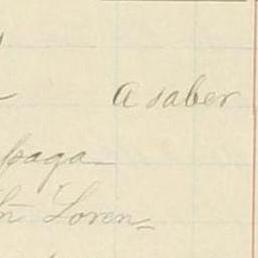 a saber
paga
Loren=